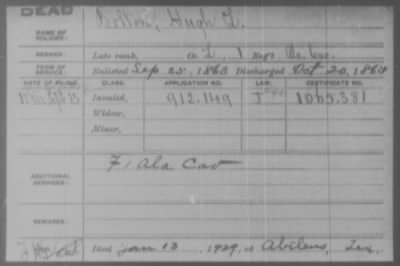 DEAD
NAME OF SOLDIER: Bolton, Hugh L.
SERVICE: Late rank, Co. L, 1 Reg't Ala. Cav.
TERM OF SERVICE: Enlisted Sep 25, 1863 Discharged Oct 20, 186
DATE OF FILING. CLASS. APPLICATION NO. LAW. CERTIFICATE NO.
Invalid, 912.149 1065.381
Widow,
Minor,
ADDITIONAL SERVICES: F 1 Ala Cav
REMARKS:
Died Jan 13, 1929, at Abilene, Tex.